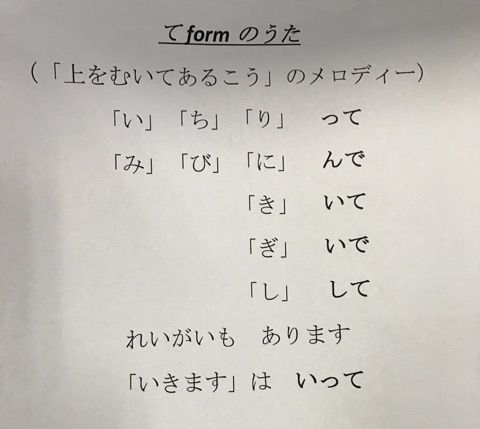 てform のうた
(「上をむいてあるこう」のメロディー)
「い」「ち」「り」 って
「み」「び」「に」 んで
「き」 いて
「ぎ」 いで
「し」 して
れいがいも あります
「いきます」は いって